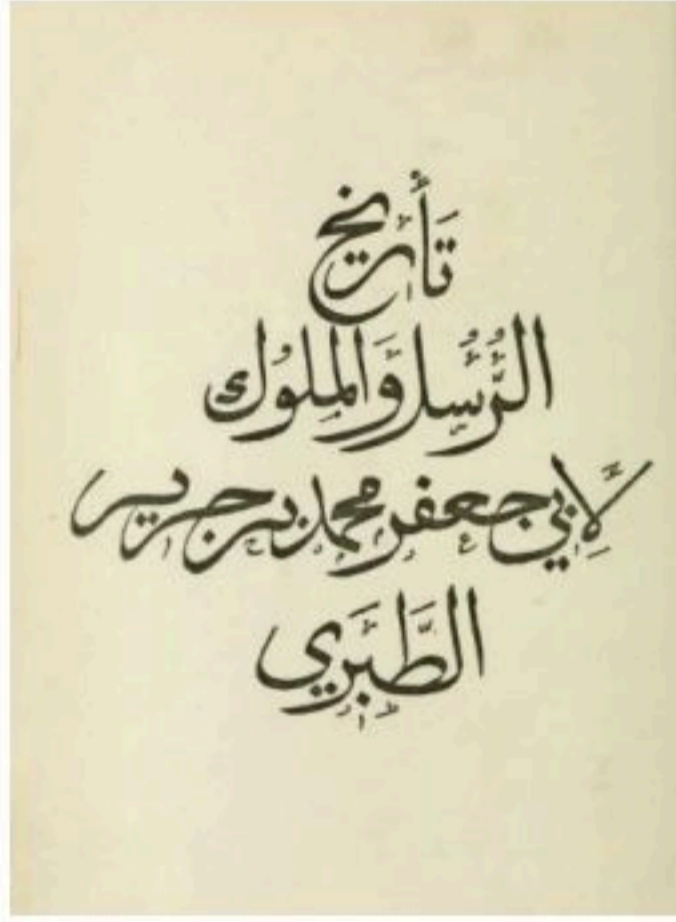 تَأْرِيخ
الرُّسُل وَالمُلوُك
لِأَبي جعفر محمد بن جرير
الطَّبَرِي